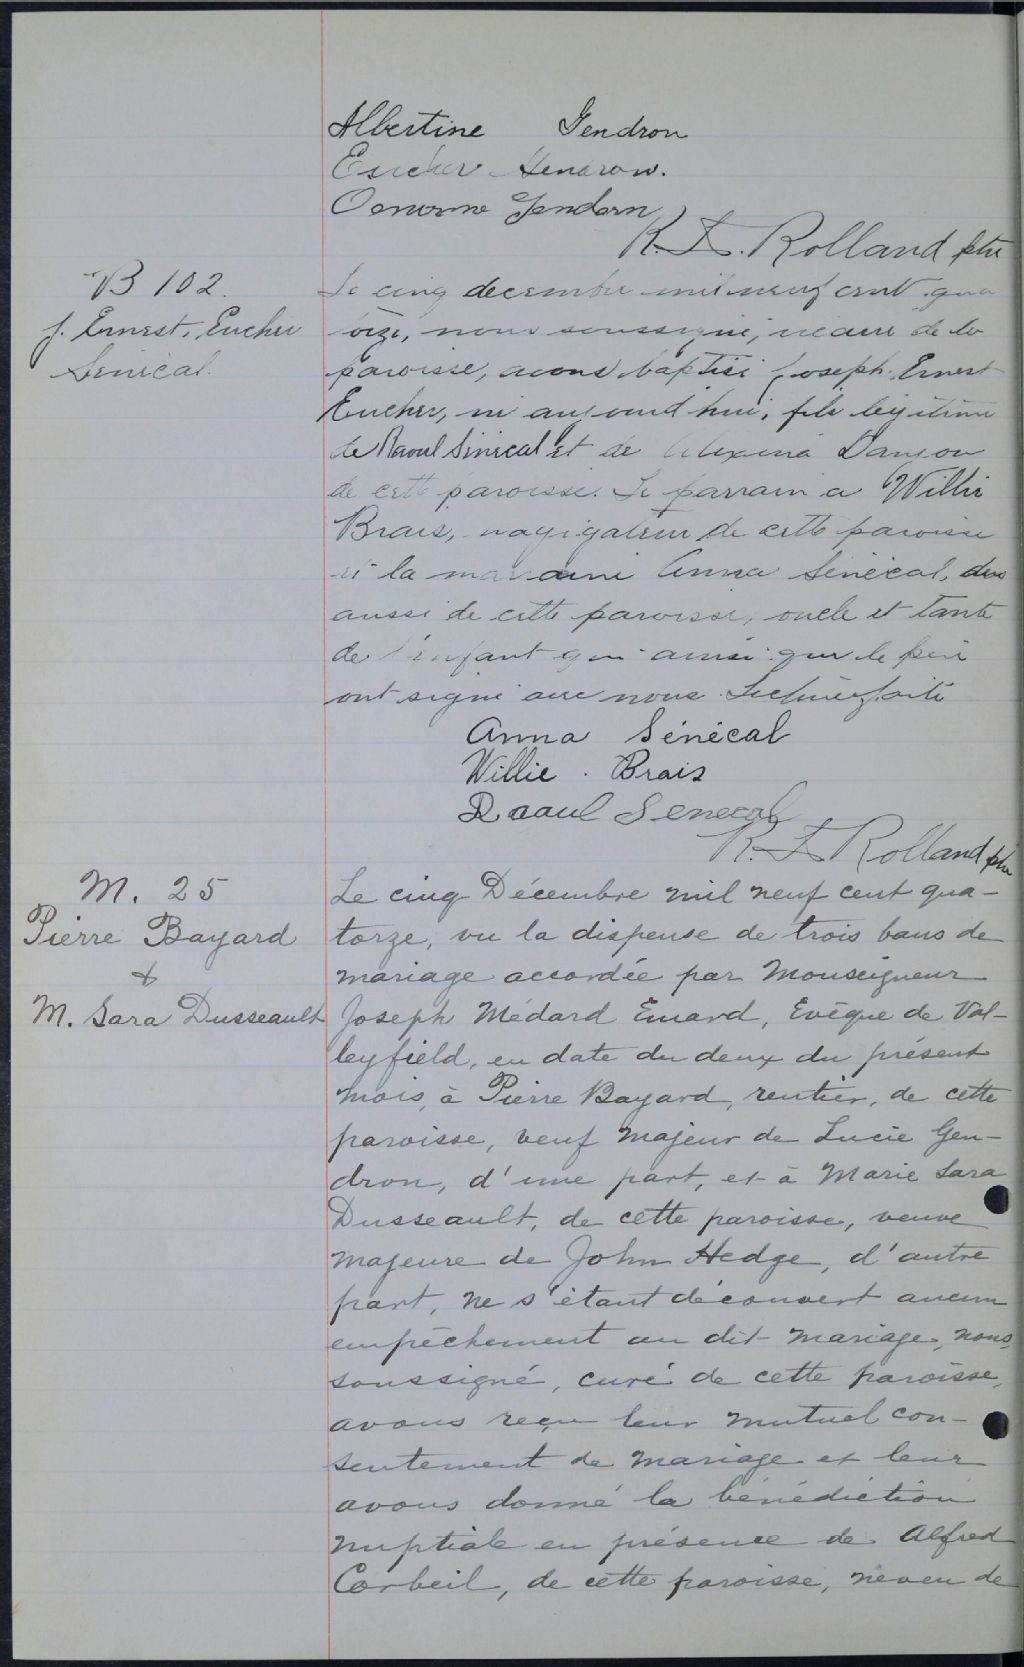 Albertine Gendron
Eucher Gendron.
Gendron
R. L. Rolland ptre
B 102.
J. Ernest, Eucher
Sénécal.
Le cinq decembre mil neuf cent qua
torze, nous soussigné, vicaire de la
paroisse, avons baptisé Joseph Ernest
Eucher, né aujourd'hui, fils légitime
de Raoul Sénécal et de Alexina Danjou
de cette paroisse. Le parrain a Willie
Brais, navigateur de cette paroisse
et la marraine Anna Sénécal,
aussi de cette paroisse, oncle et tante
de l'enfant qui ainsi que le père
ont signé avec nous. Lecture faite
Anna Sénécal
Willie Brais
Raoul Senecal
R. L. Rolland ptre
M. 25
Pierre Bayard
&
M. Sara Dusseault
Le cinq Décembre mil neuf cent qua-
torze, vu la dispense de trois bans de
mariage accordée par Monseigneur
Joseph Médard Emard, Evêque de Val-
leyfield, en date du deux du présent
mois, à Pierre Bayard, rentier, de cette
paroisse, veuf majeur de Lucie Gen-
dron, d'une part, et à Marie Sara
Dusseault, de cette paroisse, veuve
majeure de John Hedge, d'autre
part, ne s'étant découvert aucun
empêchement au dit mariage, nous,
soussigné, curé de cette paroisse,
avons reçu leur mutuel con-
sentement de mariage et leur
avons donné la bénédiction
nuptiale en présence de Alfred
Corbeil, de cette paroisse, neveu de